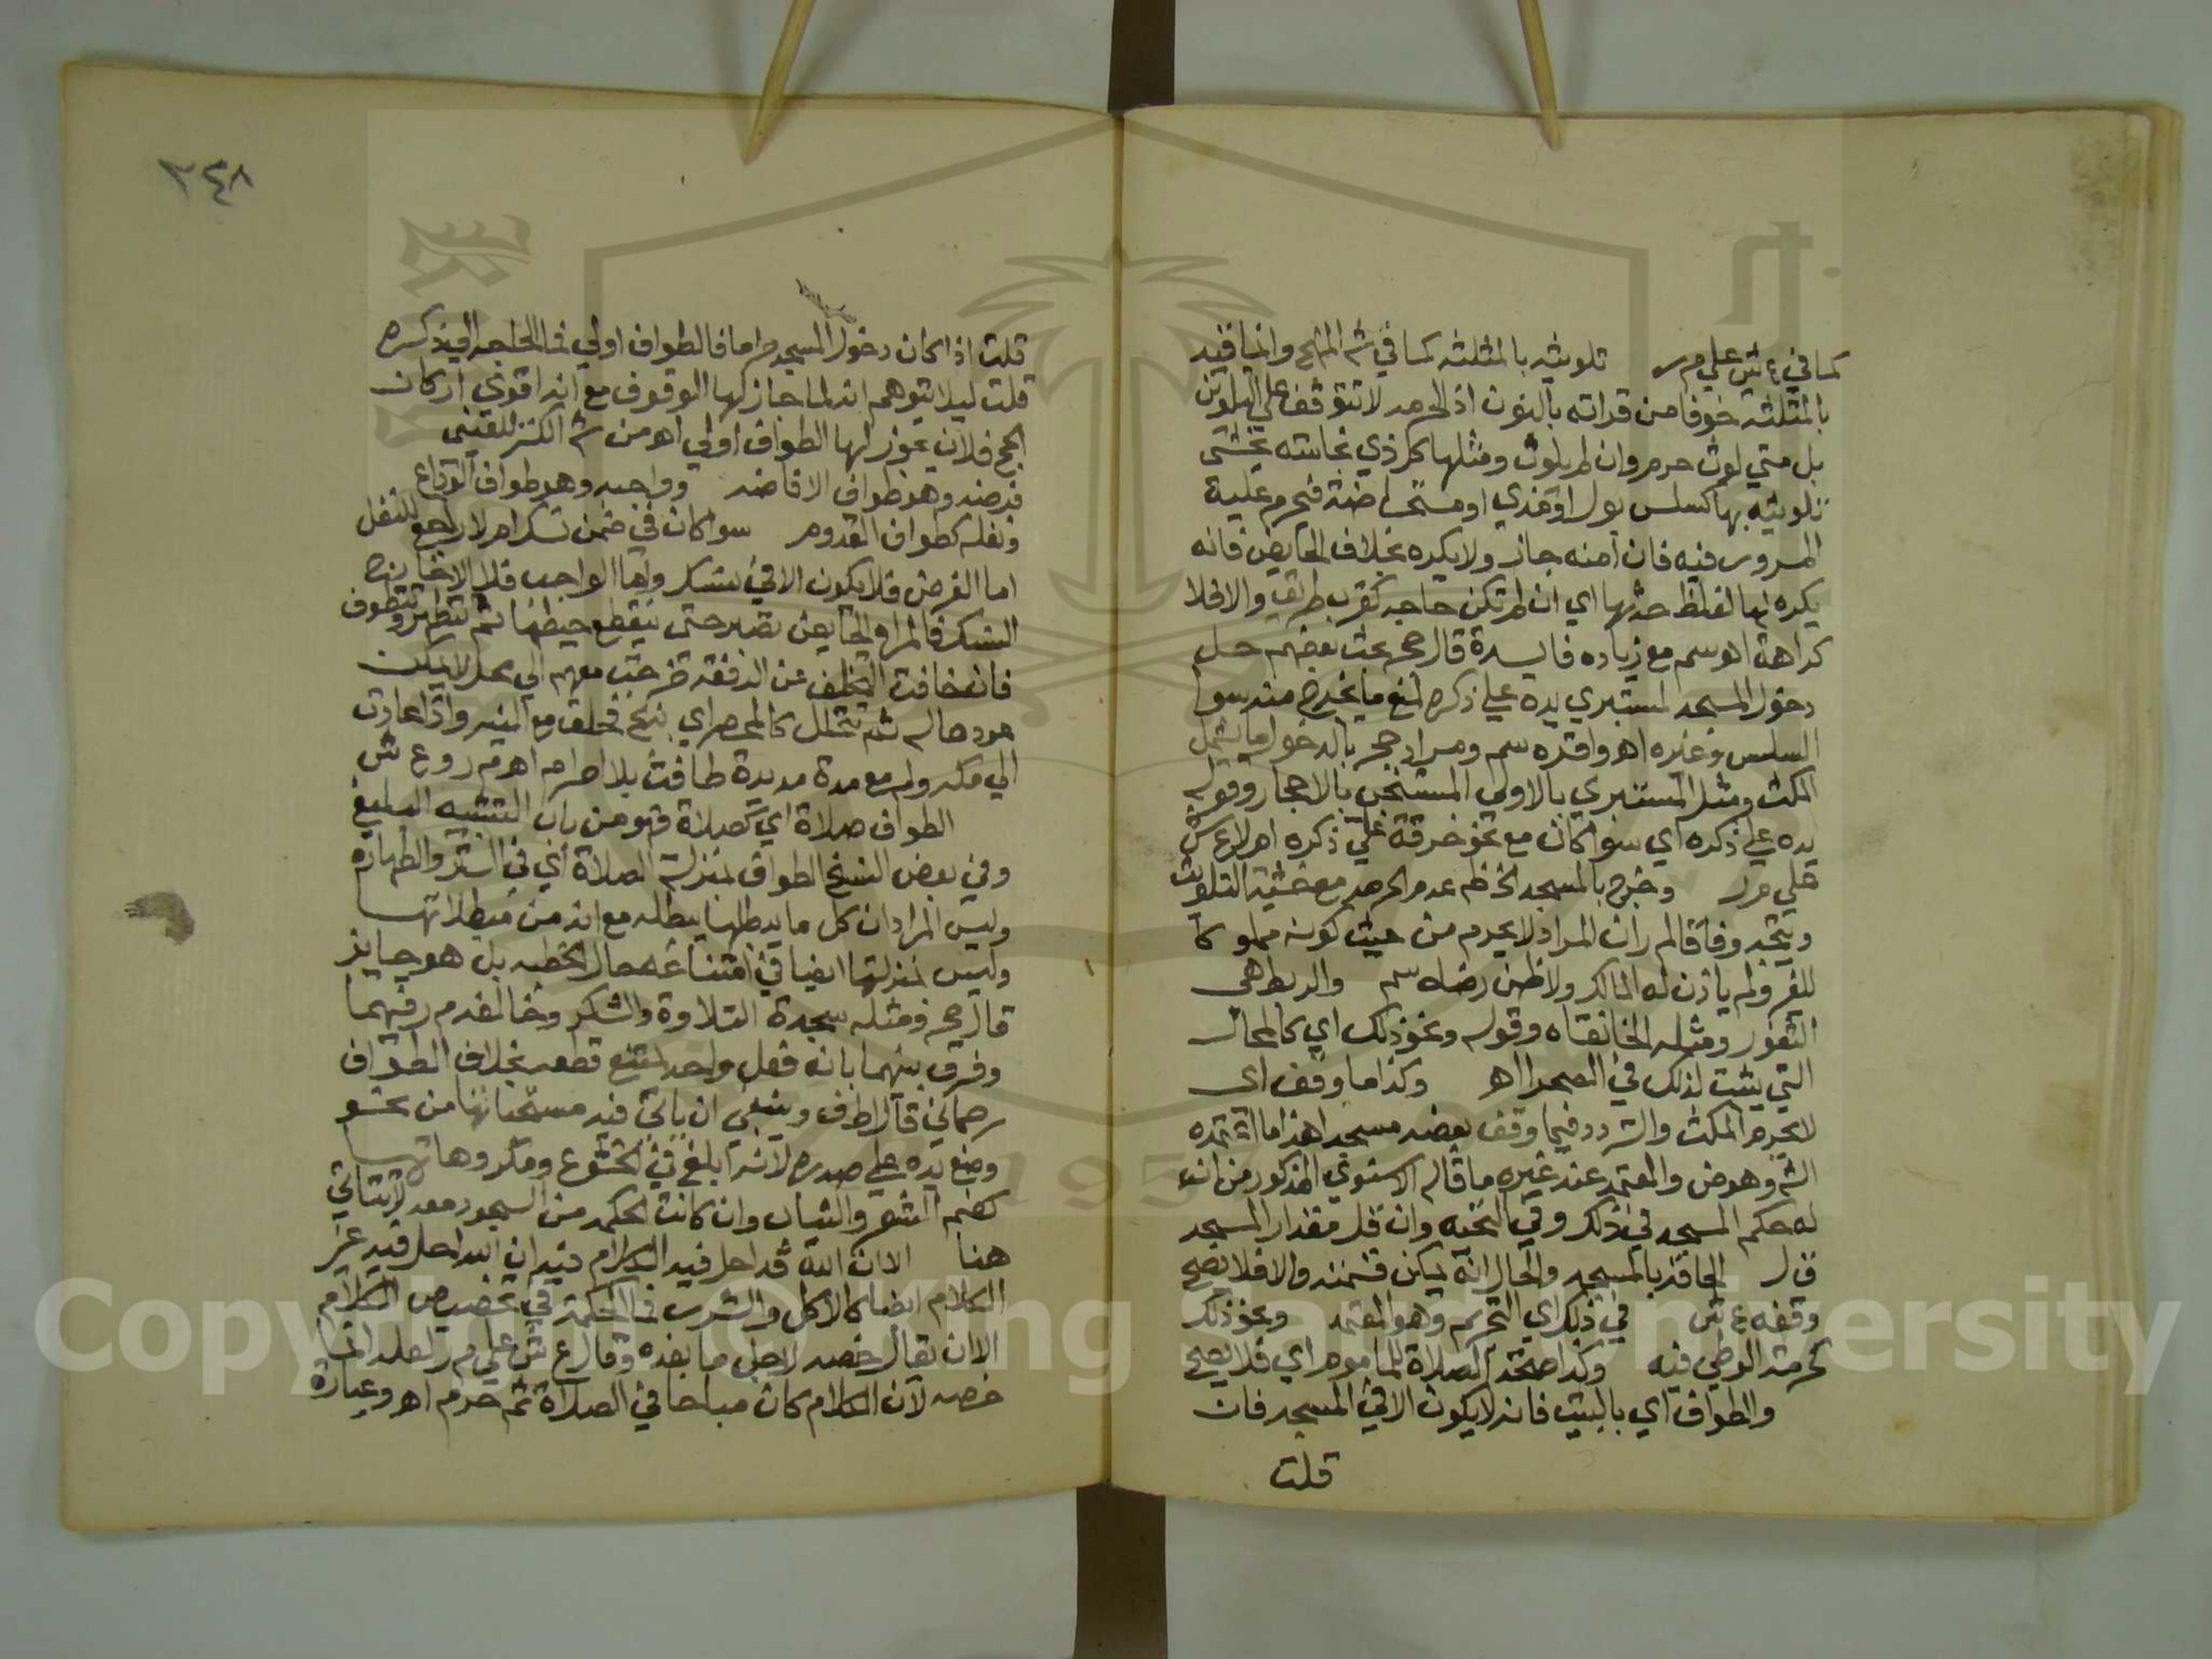 كما في ع ش علي م ر تلويثه بالمثلثه كما في شم المنهج وانما قيد
بالمثلثة خوفا من قراته بالنون اذ الحرمه لا تتوقف علي التلويث
بل متي لوث حرم وان لم يلوث ومثلها كل ذي نجاسته يخشى
تلويثه بها كسلس بول او مذي او مستحاضة فيحرم عليه
المرور فيه فان امنه جاز ولا يكره بخلاف الحايض فانه
يكره لها لغلظ حدثها اي ان لم تكن حاجه كقرب طريق والا فلا
كراهة اهو سم مع زياده فايدة قال حج بحث بعضهم حل
دخول المسجد لمستبري يده علي ذكره لمنع ما يخرج منه سوا
السلس وغيره اهو واقره سم ومراد حج بالدخول ما يشمل
المكث ومثل المستبري بالاولى المستنجي بالاحجار وقوله
يده علي ذكره اي سوا كان مع نحو خرقة علي ذكره ام لا ع ش
علي م ر وخرج بالمسجد فظ عدم الحرمه مع خشية التلويث
ويتجه وفاقا لم ر ان المراد لا يحرم من حيث كونه مملوكا
للغير ولم ياذن له المالك ولا ظن رضاه سم والربط هي
الثغور ومثله الخانقاه وقوله ونحو ذلك اي كالمحال
التي بنيت لذلك في الصحرا اهـ وكذا ما وقف اى
لا يحرم المكث والتردد فيما وقف بعضه مسجد اهذا ما اعتمده
الشم وهو ض والمعتمد عند غيره ما قاله الاسنوي المذكور من انه
له حكم المسجد في ذلك وفي التحيه وان قل مقدار المسجد
قال الحاقه بالمسجد والحال انه يمكن قسمته والا فلا يصح
وقفه ع ش في ذلك اي التحريم وهو المعتمد ونحو ذلك
كحرمة الوطي فيه وكذا صحة الصلاة للماموم اي فلا يصح
والطواف اي بالبيت فانه لا يكون الا في المسجد فان
قلت
٢٤٨
قلت اذا كان دخول المسجد حراما فالطواف اولي فما الحاجه الي ذكره
قلت ليلا يتوهم انه لما جاز لها الوقوف مع انه اقوي اركان
الحج فلان يجوز لها الطواف اولي اهو من شم الكنز للعيني
فرضه وهو طواف الافاضه وواجبه وهو طواف الوداع
ونفله كطواف القدوم سوا كان في ضمن نسك ام لا راجع للنفل
اما الفرض فلا يكون الا في نسك واما الواجب فلا الا خارج
النسك فالمراه الحايض تصبر حتى ينقطع حيضها ثم تتطهر وتطوف
فان خافت التخلف عن الرفقه خرجت معهم الي محل لا يمكن
عود حاله ثم تتحلل كالمحصر اي بذبح فحلق مع النيه واذا عادت
الي مكه ولو مع مدة مديدة طافت بلا احرام اهو م ر وع ش
الطواف صلاة اي كصلاة فهو من باب التشبيه البليغ
وفي بعض النسخ الطواف بمنزلة الصلاة اي في الستر والطهارة
وليس المراد ان كل ما يبطلها يبطله مع انه من مبطلاتها
وليس بمنزلتها ايضا في امتناعه حال الخطبه بل هو جايز
قال حج ومثله سجدة التلاوة والشكر وخالفه م ر فيهما
وفرق بينهما بانه فعل واحد يمتنع قطعه بخلاف الطواف
رحماني قال اطف وينبغي ان ياتي فيه مستحباتها من نحو
وضع يده علي صدره لانه ابلغ في الخشوع ومكروهاتها
كضم الشعر والثياب وان كانت الحكمه من السجود معه لا يتاتي
هنا الا ان الله قد احل فيه الكلام فيه ان الله احل فيه غير
الكلام ايضا كالاكل والشرب فما الحكمة في تخصيص الكلام
الا ان يقال خصه لاجل ما بعده وقال ع ش علي م ر لعله انما
خصه لان الكلام كان مباحا في الصلاة ثم حرم اهو وعبارة